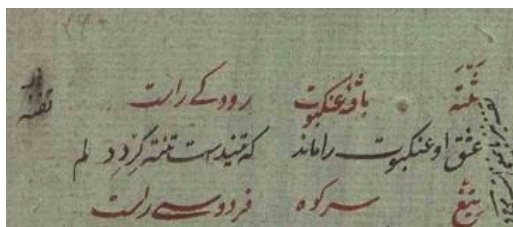 تنته بافهٔ عنکبوت رودکے راست
تفنه
عشق او عنکبوت را ماند که تنیدست تنته گرد دلم
تیغ سر کوه فردوسے راست